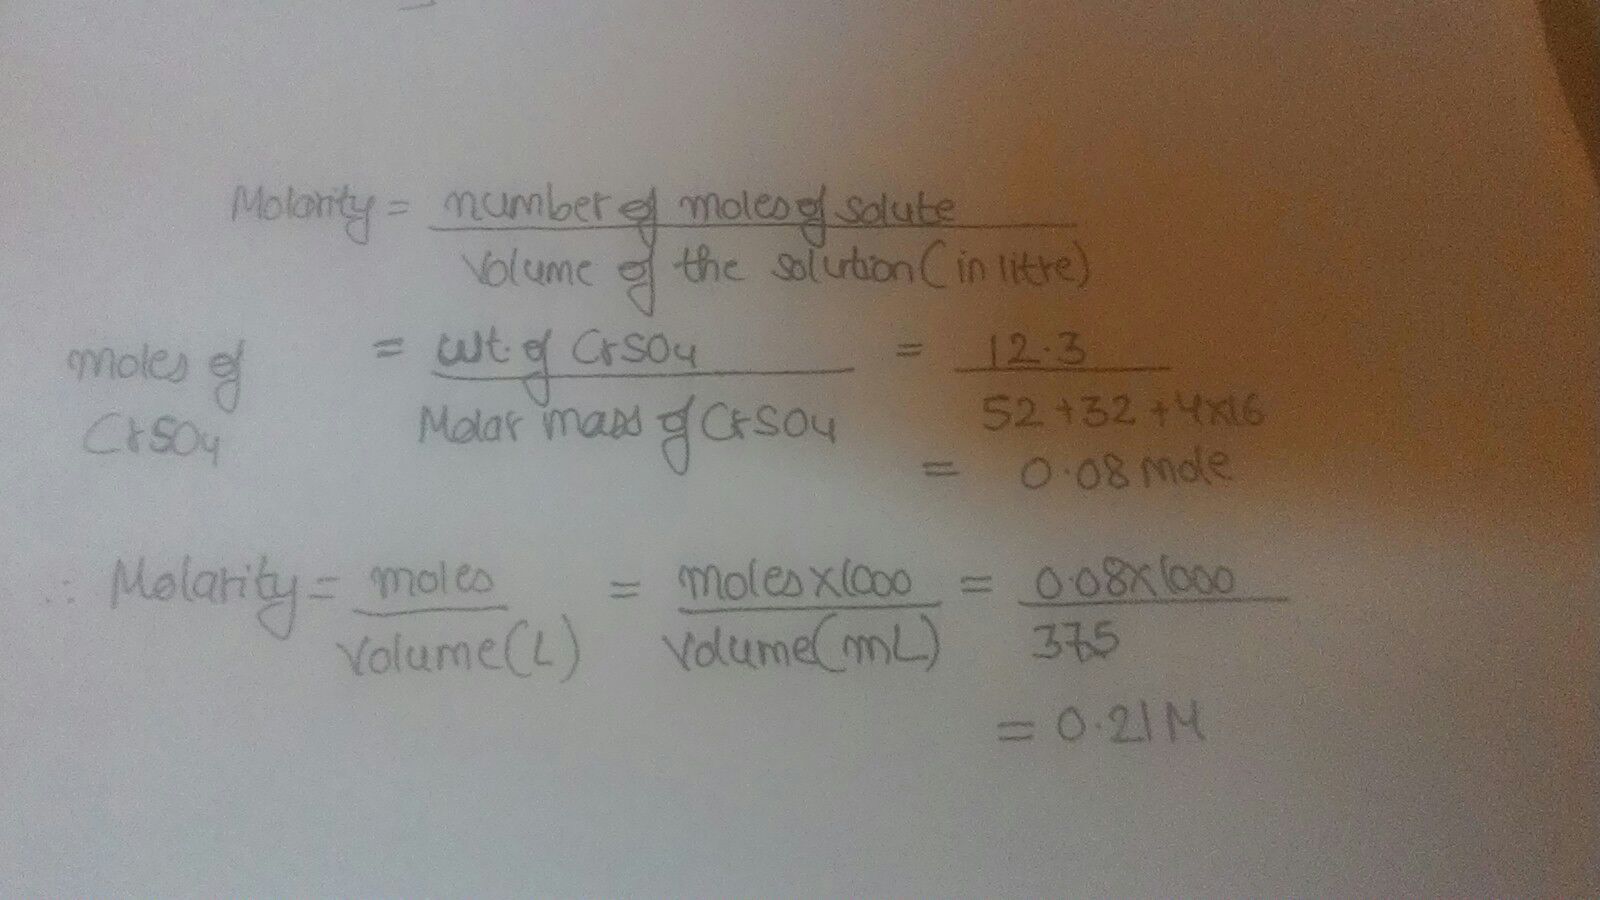 Molarity = number of moles of solute
Volume of the solution (in litre)
moles of CrSO4 = wt. of CrSO4 = 12.3
Molar mass of CrSO4 52+32+4x16
= 0.08 mole
∴ Molarity = moles = moles x 1000 = 0.08 x 1000
Volume (L) Volume (mL) 375
= 0.21 M